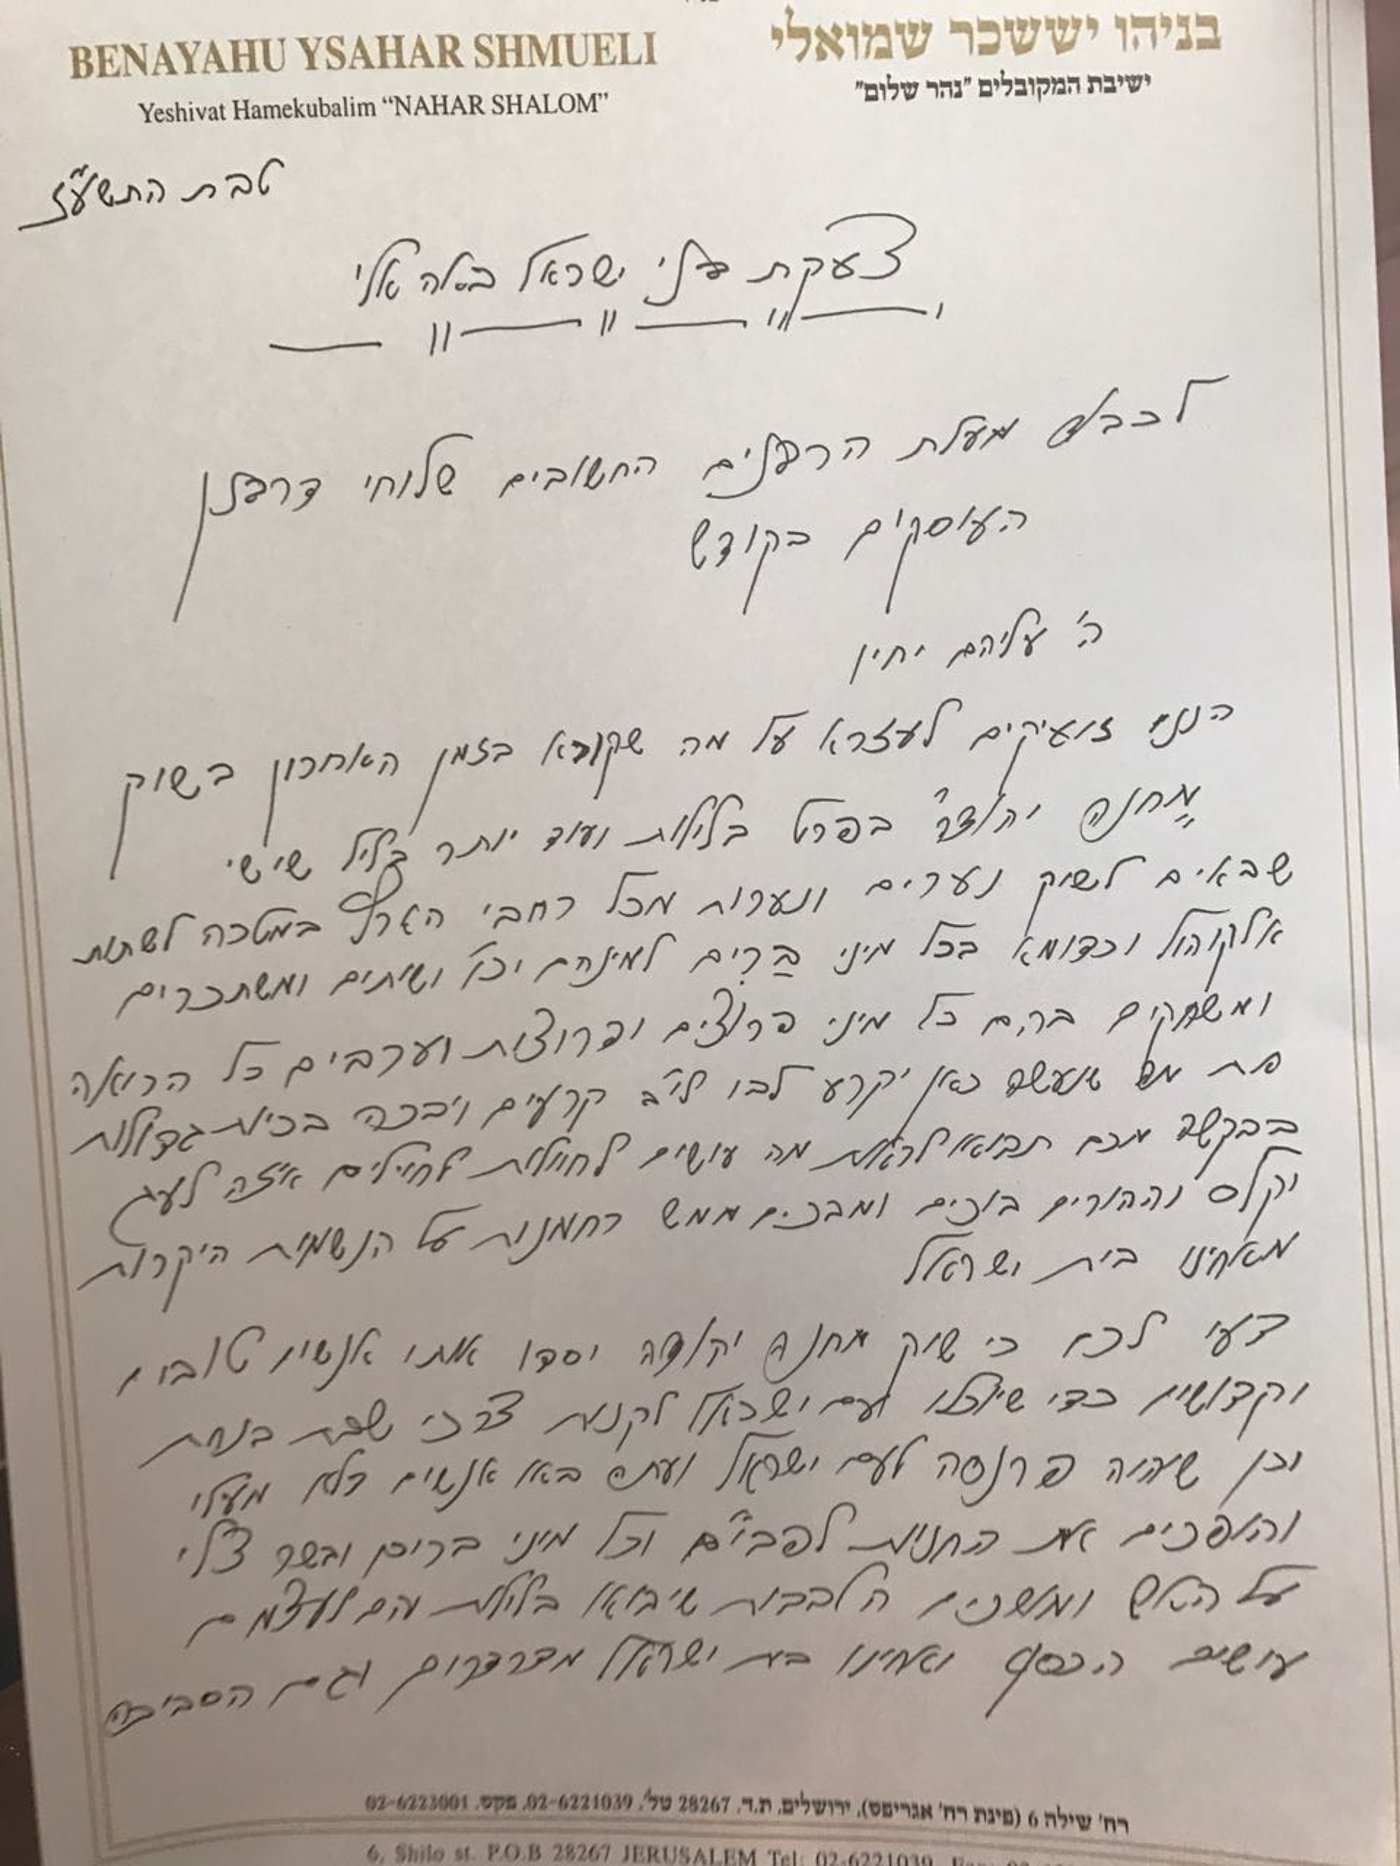 BENAYAHU YSAHAR SHMUELI
בניהו יששכר שמואלי
Yeshivat Hamekubalim “NAHAR SHALOM”
ישיבת המקובלים "נהר שלום"
טבת התשע"ז
צעקת בני ישראל באה אלי
לכבוד מעלת הרבנים החשובים שלוחי דרבנן
העוסקים בקודש
ה' עליהם יחיו
הננו זועקים לעזרא על מה שקורא בזמן האחרון בשוק
מחנה יהודה בפרט בלילות ועוד יותר בליל שישי
שבאים לשוק נערים ונערות מכל רחבי הארץ במטרה לשתות
אלקוהול וכדומא בכל מיני ברים למינהם וכו' ושותים ומשתכרים
ומשחקים בהם כל מיני פרוצים ופרוצות וערבים כל הרואה
את מה שנעשה כאן יקרע לבו לי"ב קרעים ויבכה בכיות גדולות
בבקשה מכם תבואו לראות מה עושים לחיילות לחיילים איזה לעג
וקלס וההורים בוכים ומבכים ממש רחמנות על הנשמות היקרות
מאחינו בית ישראל
דעו לכם כי שוק מחנה יהודה יסדו אותו אנשים טובים
וקדושים כדי שיוכלו עם ישראל לקנות צרכי שבת בנחת
וכן שיהיה פרנסה לעם ישראל ועתה באו אנשים דלא מעלי
והופכים את החנויות לפבי"ם וכל מיני ברים ובשר צלי
על האש ומושכים הלבבות שיבואו בלילות הם לעצמם
עושים הכסף ואחינו בית ישראל מדרדרים וגם הסביבה
רח' שילה 6 (פינת רח' אגריפס), ירושלים, ת.ד. 28267 טל'. 02-6221039, פקס. 02-6223001
6, Shilo st. P.O.B 28267 JERUSALEM Tel: 02-6221039